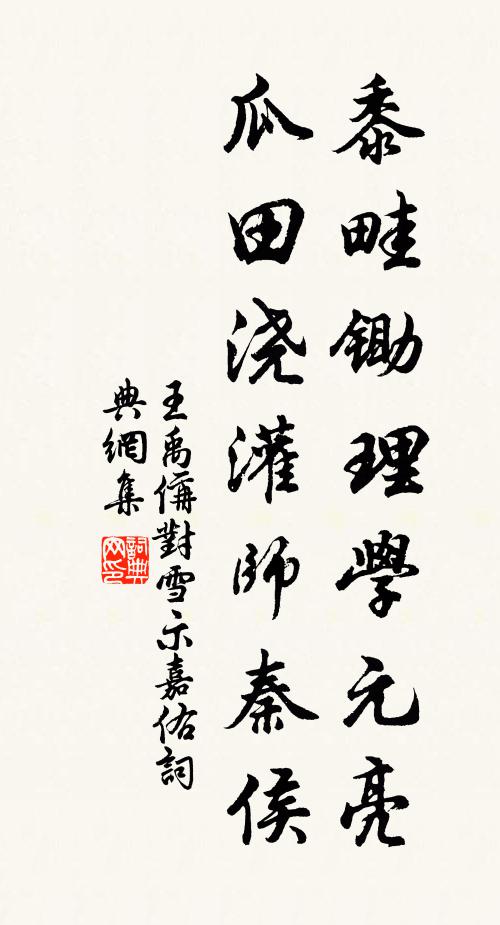 黍畦鋤理學元亮
瓜田浇灌師秦侯
王禹偁對雪示嘉佑詞
典網集
詞典
网印